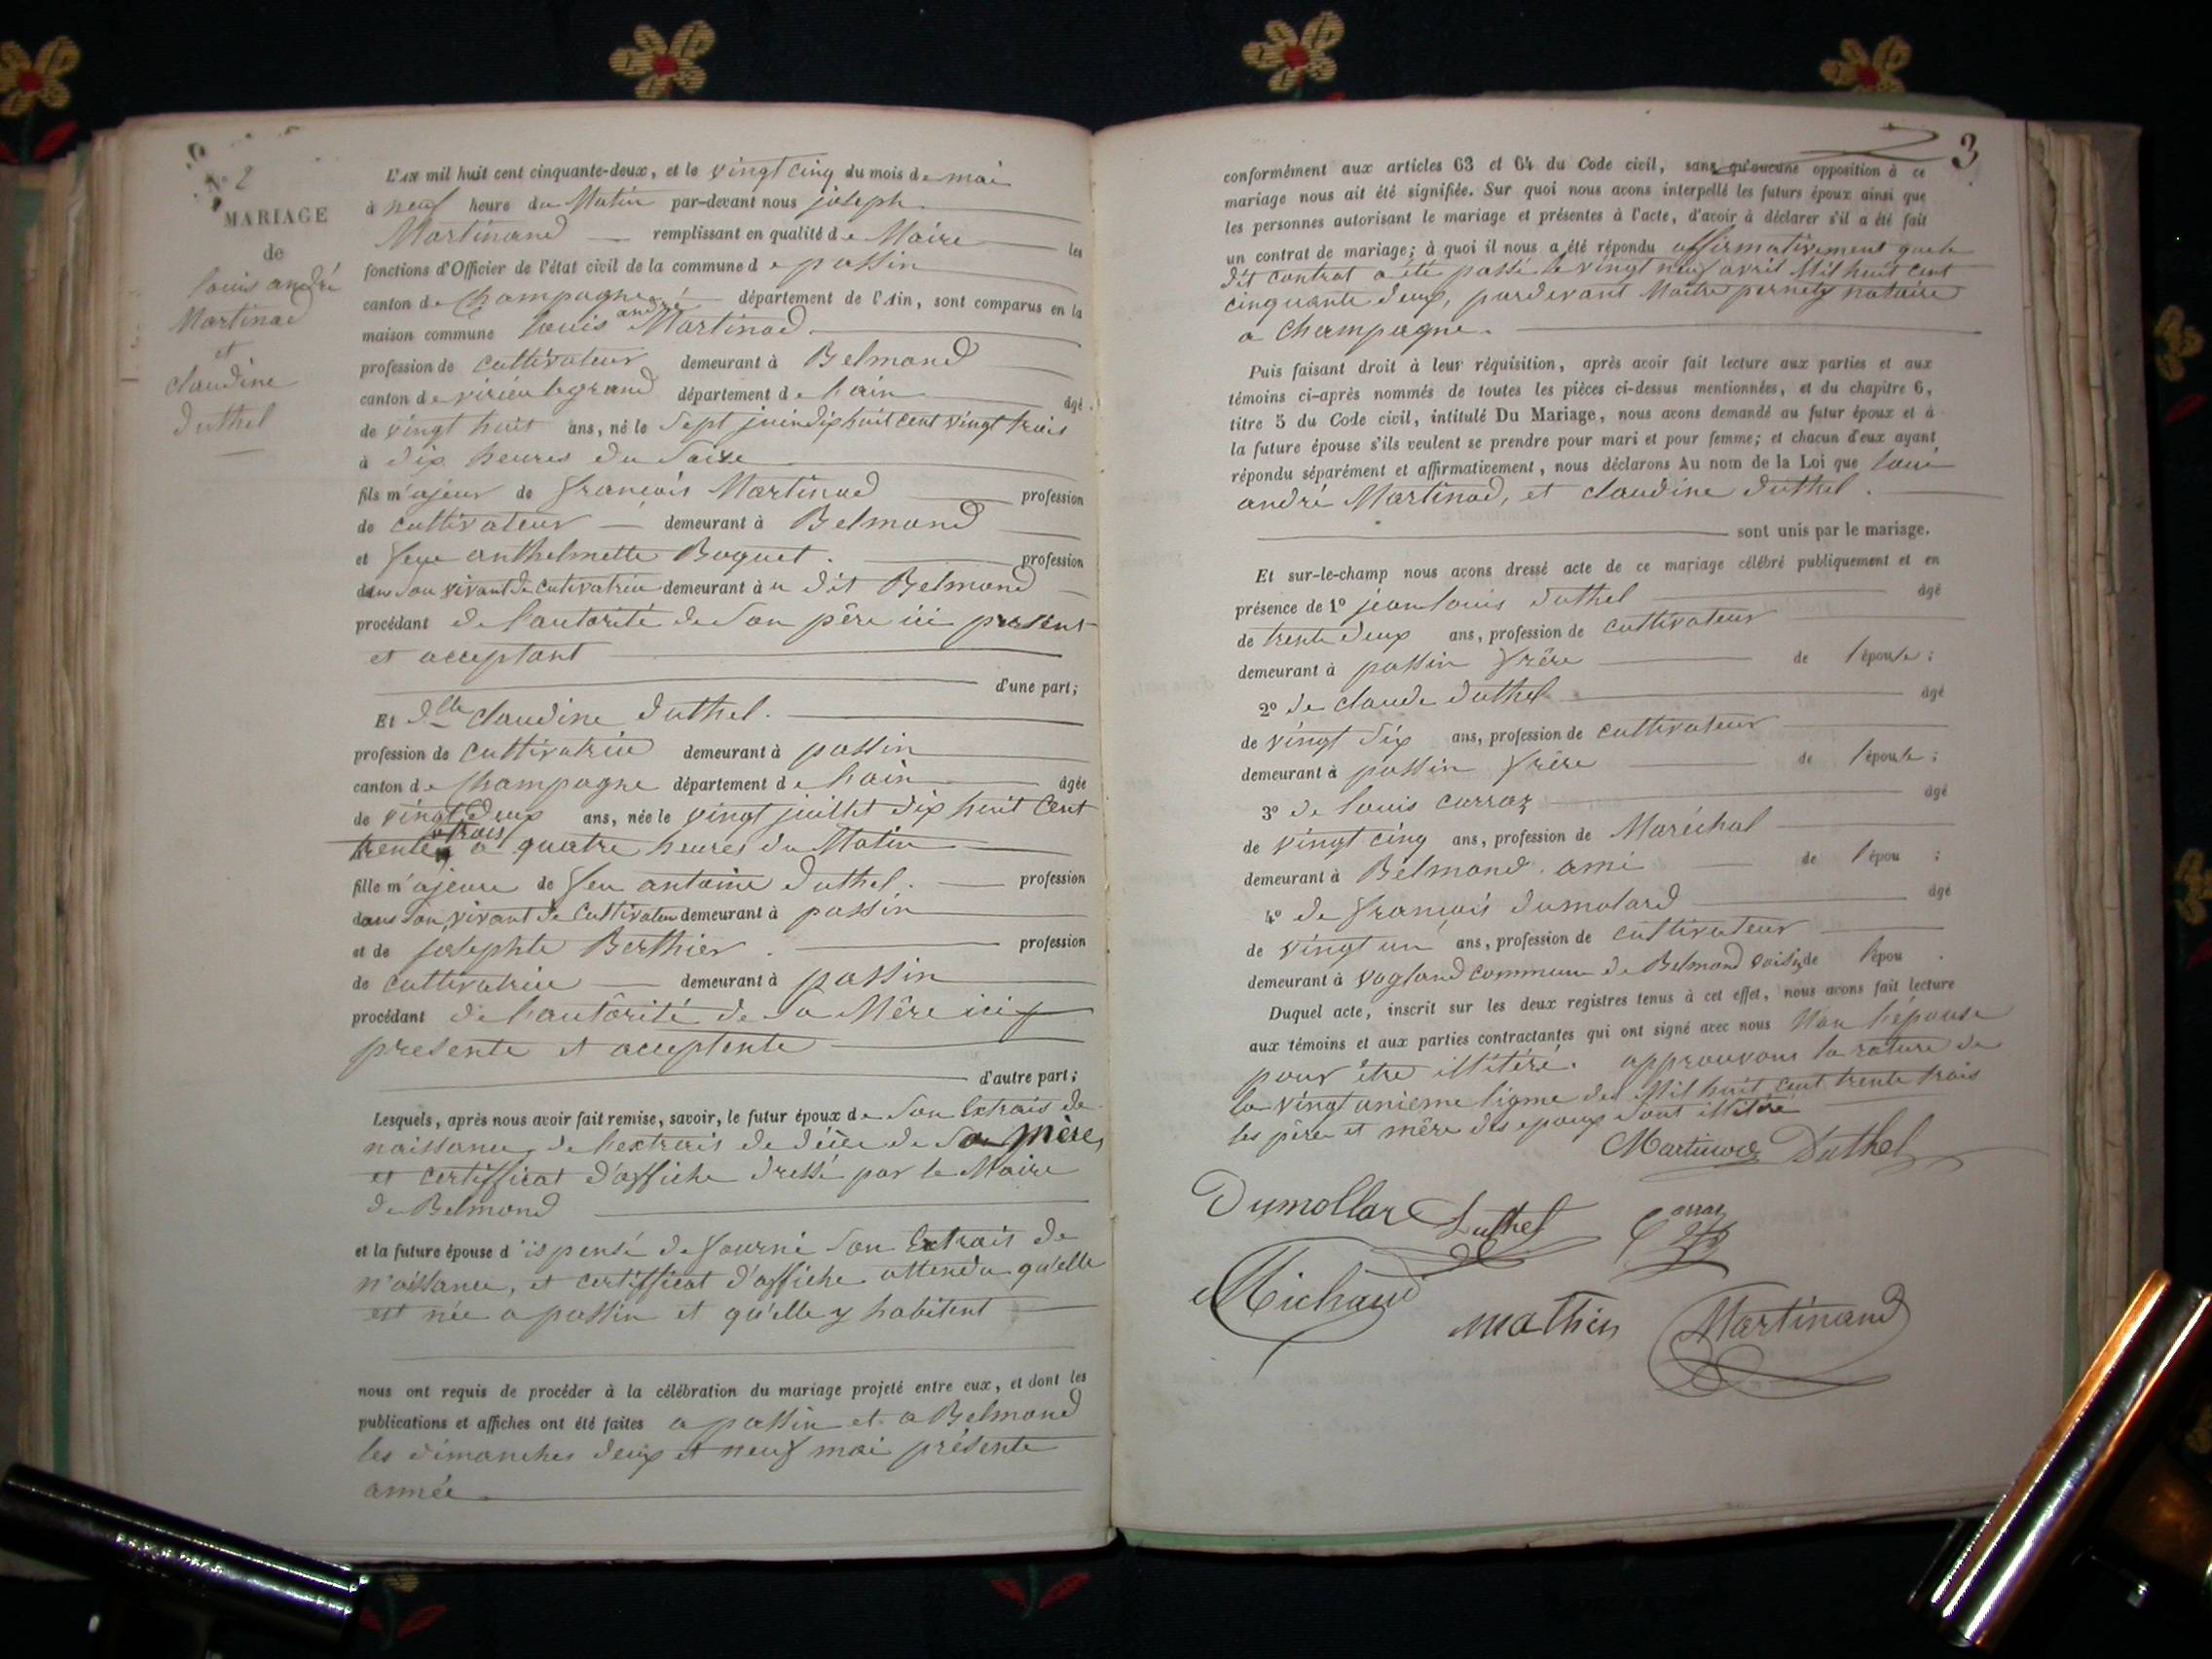 N° 2
MARIAGE
de
louis andré
Martinad
et
claudine
duthel
L'AN mil huit cent cinquante-deux, et le vingt cinq du mois de mai
à neuf heure du Matin par-devant nous joseph
Martinand remplissant en qualité de Maire les
fonctions d'Officier de l'état civil de la commune de passin
canton de Champagne département de l'Ain, sont comparus en la
maison commune louis andré Martinad
profession de cultivateur demeurant à Belmond
canton de virieu legrand département de lain âgé
de vingt huit ans, né le Sept juin dix huit cent vingt trois
à dix heures du Soire
fils majeur de françois Martinad profession
de cultivateur demeurant à Belmond
et feue anthelmette Boquet profession
dans son vivant de cutivatrice demeurant à u dit Belmond
procédant de l'autorité de Son père ici présent
et acceptant
d'une part;
Et dlle claudine duthel.
profession de cultivatrice demeurant à passin
canton de Champagne département de lain âgée
de vingt deux ans, née le vingt juillet dix huit Cent
trente trois a quatre heures du Matin
fille m'ajeure de feu antoine duthel. profession
dans son vivant de Cultivateu demeurant à passin
et de josephte Berthier profession
de cultivatrice demeurant à passin
procédant de l'autorité de Sa Mère ici
presente et acceptente
d'autre part;
Lesquels, après nous avoir fait remise, savoir, le futur époux de Son Extrais de
naissance, de l'extrais de décès de Sa mère,
et certifficat d'affiche dressé par le Maire
de Belmond
et la future épouse d'ispensé de fourni Son Extrais de
n'aissance, et certifficat d'affiche attendu qu'elle
est née a passin et qu'elle y habitent
nous ont requis de procéder à la célébration du mariage projeté entre eux, et dont les
publications et affiches ont été faites a passin et a Belmond
les dimanches deux et neuf mai présente
année
3
conformément aux articles 63 et 64 du Code civil, sans qu'aucune opposition à ce
mariage nous ait été signifiée. Sur quoi nous avons interpellé les futurs époux ainsi que
les personnes autorisant le mariage et présentes à l'acte, d'avoir à déclarer s'il a été fait
un contrat de mariage; à quoi il nous a été répondu affirmativement que le
dit contrat a été passé le vingt neuf avril Mil huit Cent
cinquante deux, pardevant Maitre pernety notaire
a Champagne.
Puis faisant droit à leur réquisition, après avoir fait lecture aux parties et aux
témoins ci-après nommés de toutes les pièces ci-dessus mentionnées, et du chapitre 6,
titre 5 du Code civil, intitulé Du Mariage, nous avons demandé au futur époux et à
la future épouse s'ils veulent se prendre pour mari et pour femme; et chacun d'eux ayant
répondu séparément et affirmativement, nous déclarons Au nom de la Loi que loui
andré Martinad, et claudine duthel.
sont unis par le mariage.
Et sur-le-champ nous avons dressé acte de ce mariage célébré publiquement et en
présence de 1° jean louis duthel âgé
de trente deux ans, profession de cultivateur
demeurant à passin frère de l'épouse;
2° de claude duthel âgé
de vingt Six ans, profession de cultivateur
demeurant à passin frère de l'épouse;
3° de louis carraz âgé
de vingt cinq ans, profession de Maréchal
demeurant à Belmond ami de l'épou ;
4° de françois dumolard âgé
de vingt un ans, profession de cultivateur
demeurant à vogland commune de Belmond voisin de l'épou
Duquel acte, inscrit sur les deux registres tenus à cet effet, nous avons fait lecture
aux témoins et aux parties contractantes qui ont signé avec nous Non l'épouse
pour être illitéré. approuvons la rature de
la vingt unieme ligne des Mil huit cent trente trois
les père et mère des epoux Sont illitéré
Martinod Duthel
Dumollar Duthel Carraz
Michaud mathieu Martinand